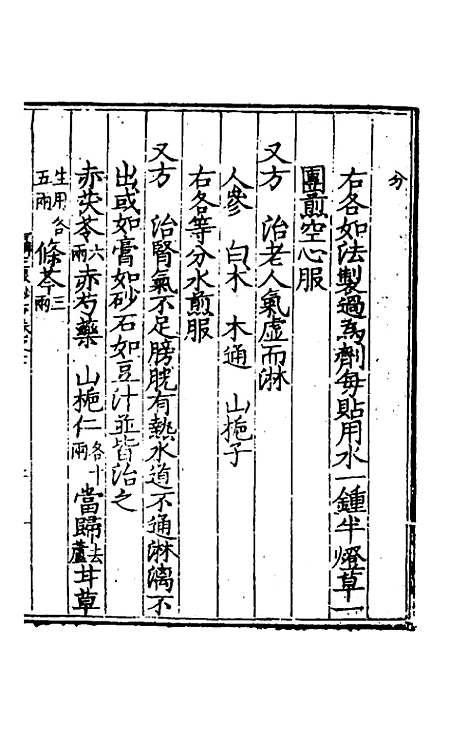 分
右各如法製過為劑每貼用水一鍾半燈草一
團煎空心服
又方 治老人氣虛而淋
人參 白朮 木通 山梔子
右各等分水煎服
又方 治腎氣不足膀胱有熱水道不通淋漓不
出或如膏如砂石如豆汁並皆治之
赤茯苓六兩 赤芍藥 山梔仁各十兩 當歸去蘆 甘草
生用各五兩 條芩三兩